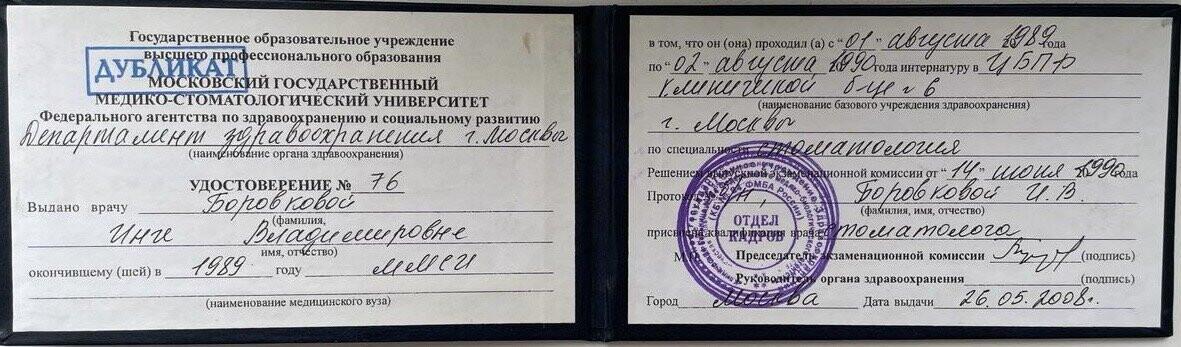 Государственное образовательное учреждение
высшего профессионального образования
ДУБЛИКАТ
МОСКОВСКИЙ ГОСУДАРСТВЕННЫЙ
МЕДИКО-СТОМАТОЛОГИЧЕСКИЙ УНИВЕРСИТЕТ
Федерального агентства по здравоохранению и социальному развитию
Департамент здравоохранения г. Москвы
(наименование органа здравоохранения)
УДОСТОВЕРЕНИЕ № 76
Выдано врачу Боровковой
(фамилия,
Инге Владимировне
имя, отчество)
окончившему (шей) в 1989 году ММСИ
(наименование медицинского вуза)
в том, что он (она) проходил (а) с "01" августа 1989 года
по "02" августа 1990 года интернатуру в ЦБПР
Клинической б-це 6
(наименование базового учреждения здравоохранения)
г. Москвы
по специальности стоматология
Решением выпускной экзаменационной комиссии от "14" июня 1990 года
Протокол Боровковой И.В.
(фамилия, имя, отчество)
присвоена квалификация врача стоматолога
М.П. Председатель экзаменационной комиссии (подпись)
Руководитель органа здравоохранения (подпись)
Город Москва Дата выдачи 26.05.2008г.
ОТДЕЛ
КАДРОВ
ФМБА России